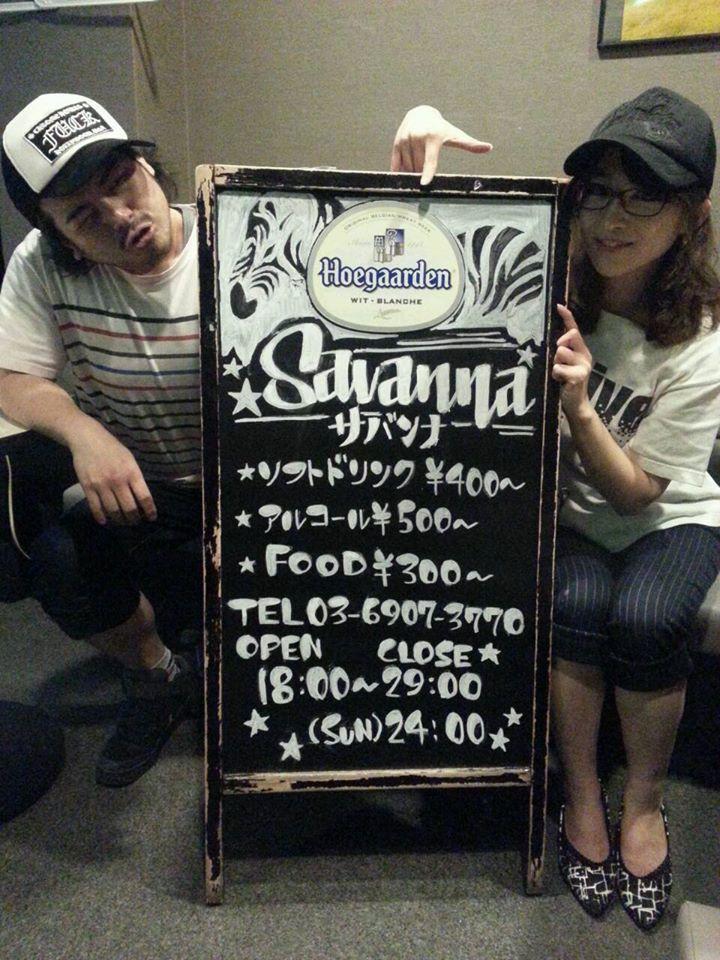 FUCK
ORIGINAL BELGIAN WHEAT BEER
Hoegaarden
WIT - BLANCHE
Savanna
サバンナ
★ソフトドリンク ¥400〜
★アルコール¥500〜
★FOOD¥300〜
TEL03-6907-3770
OPEN CLOSE★
18:00〜29:00
★ ★(SUN)24:00★★